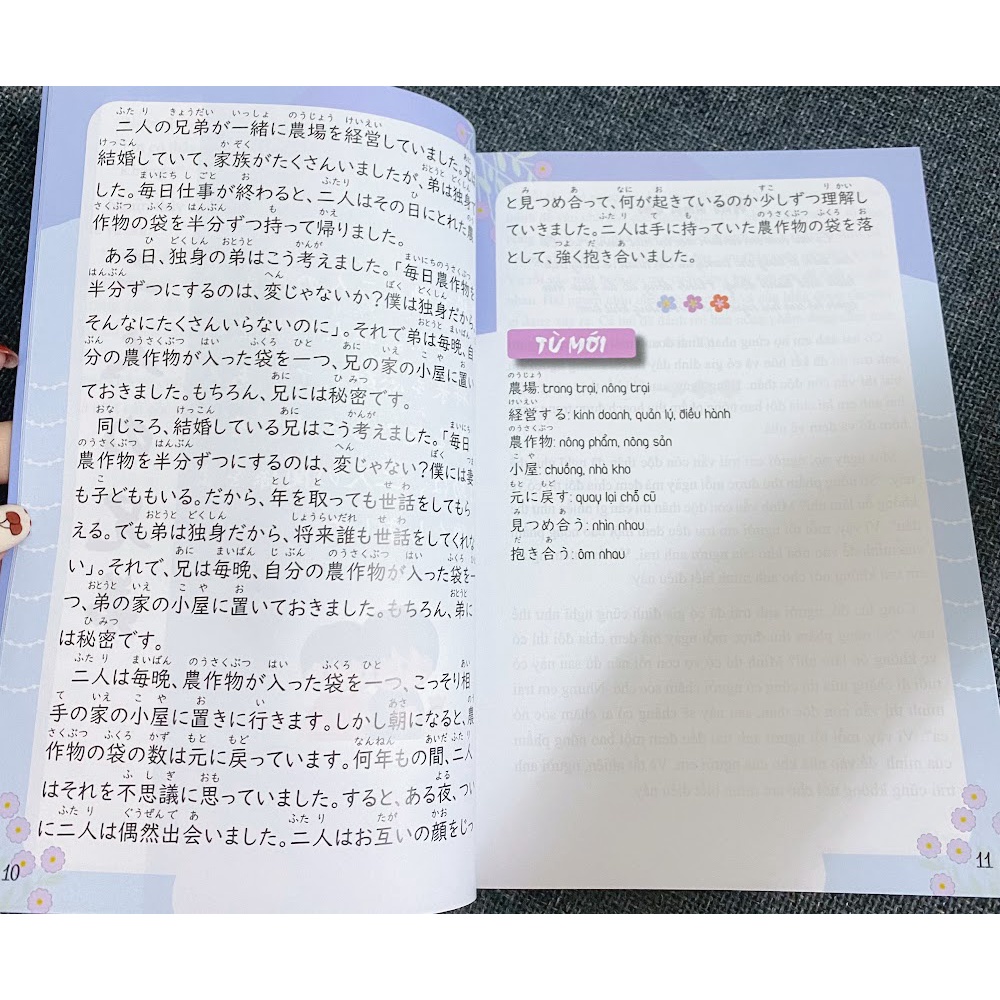 二人の兄弟が一緒に農場を経営していました。兄
結婚していて、家族がたくさんいましたが、弟は独身
した。毎日仕事が終わると、二人はその日にとれた農
作物の袋を半分ずつ持って帰りました。
ある日、独身の弟はこう考えました。「毎日農作物を
半分ずつにするのは、変じゃないか？僕は独身だから、
そんなにたくさんいらないのに」。それで弟は毎晩、自
分の農作物が入った袋を一つ、兄の家の小屋に置い
ておきました。もちろん、兄には秘密です。
同じころ、結婚している兄はこう考えました。「毎日
農作物を半分ずつにするのは、変じゃない？僕には妻
も子どももいる。だから、年を取っても世話をしてもら
える。でも弟は独身だから、将来誰も世話をしてくれな
い」。それで、兄は毎晩、自分の農作物が入った袋を一
つ、弟の家の小屋に置いておきました。もちろん、弟に
は秘密です。
二人は毎晩、農作物が入った袋を一つ、こっそり相
手の家の小屋に置きに行きます。しかし朝になると、農
作物の袋の数は元に戻っています。何年もの間、二人
はそれを不思議に思っていました。すると、ある夜、つい
に二人は偶然出会いました。二人はお互いの顔をじっ
10
と見つめ合って、何が起きているのか少しずつ理解し
ていきました。二人は手に持っていた農作物の袋を落
として、強く抱き合いました。
TỪ MỚI
農場: trang trại, nông trại
経営する: kinh doanh, quản lý, điều hành
農作物: nông phẩm, nông sản
小屋: chuồng, nhà kho
元に戻す: quay lại chỗ cũ
見つめ合う: nhìn nhau
抱き合う: ôm nhau
11